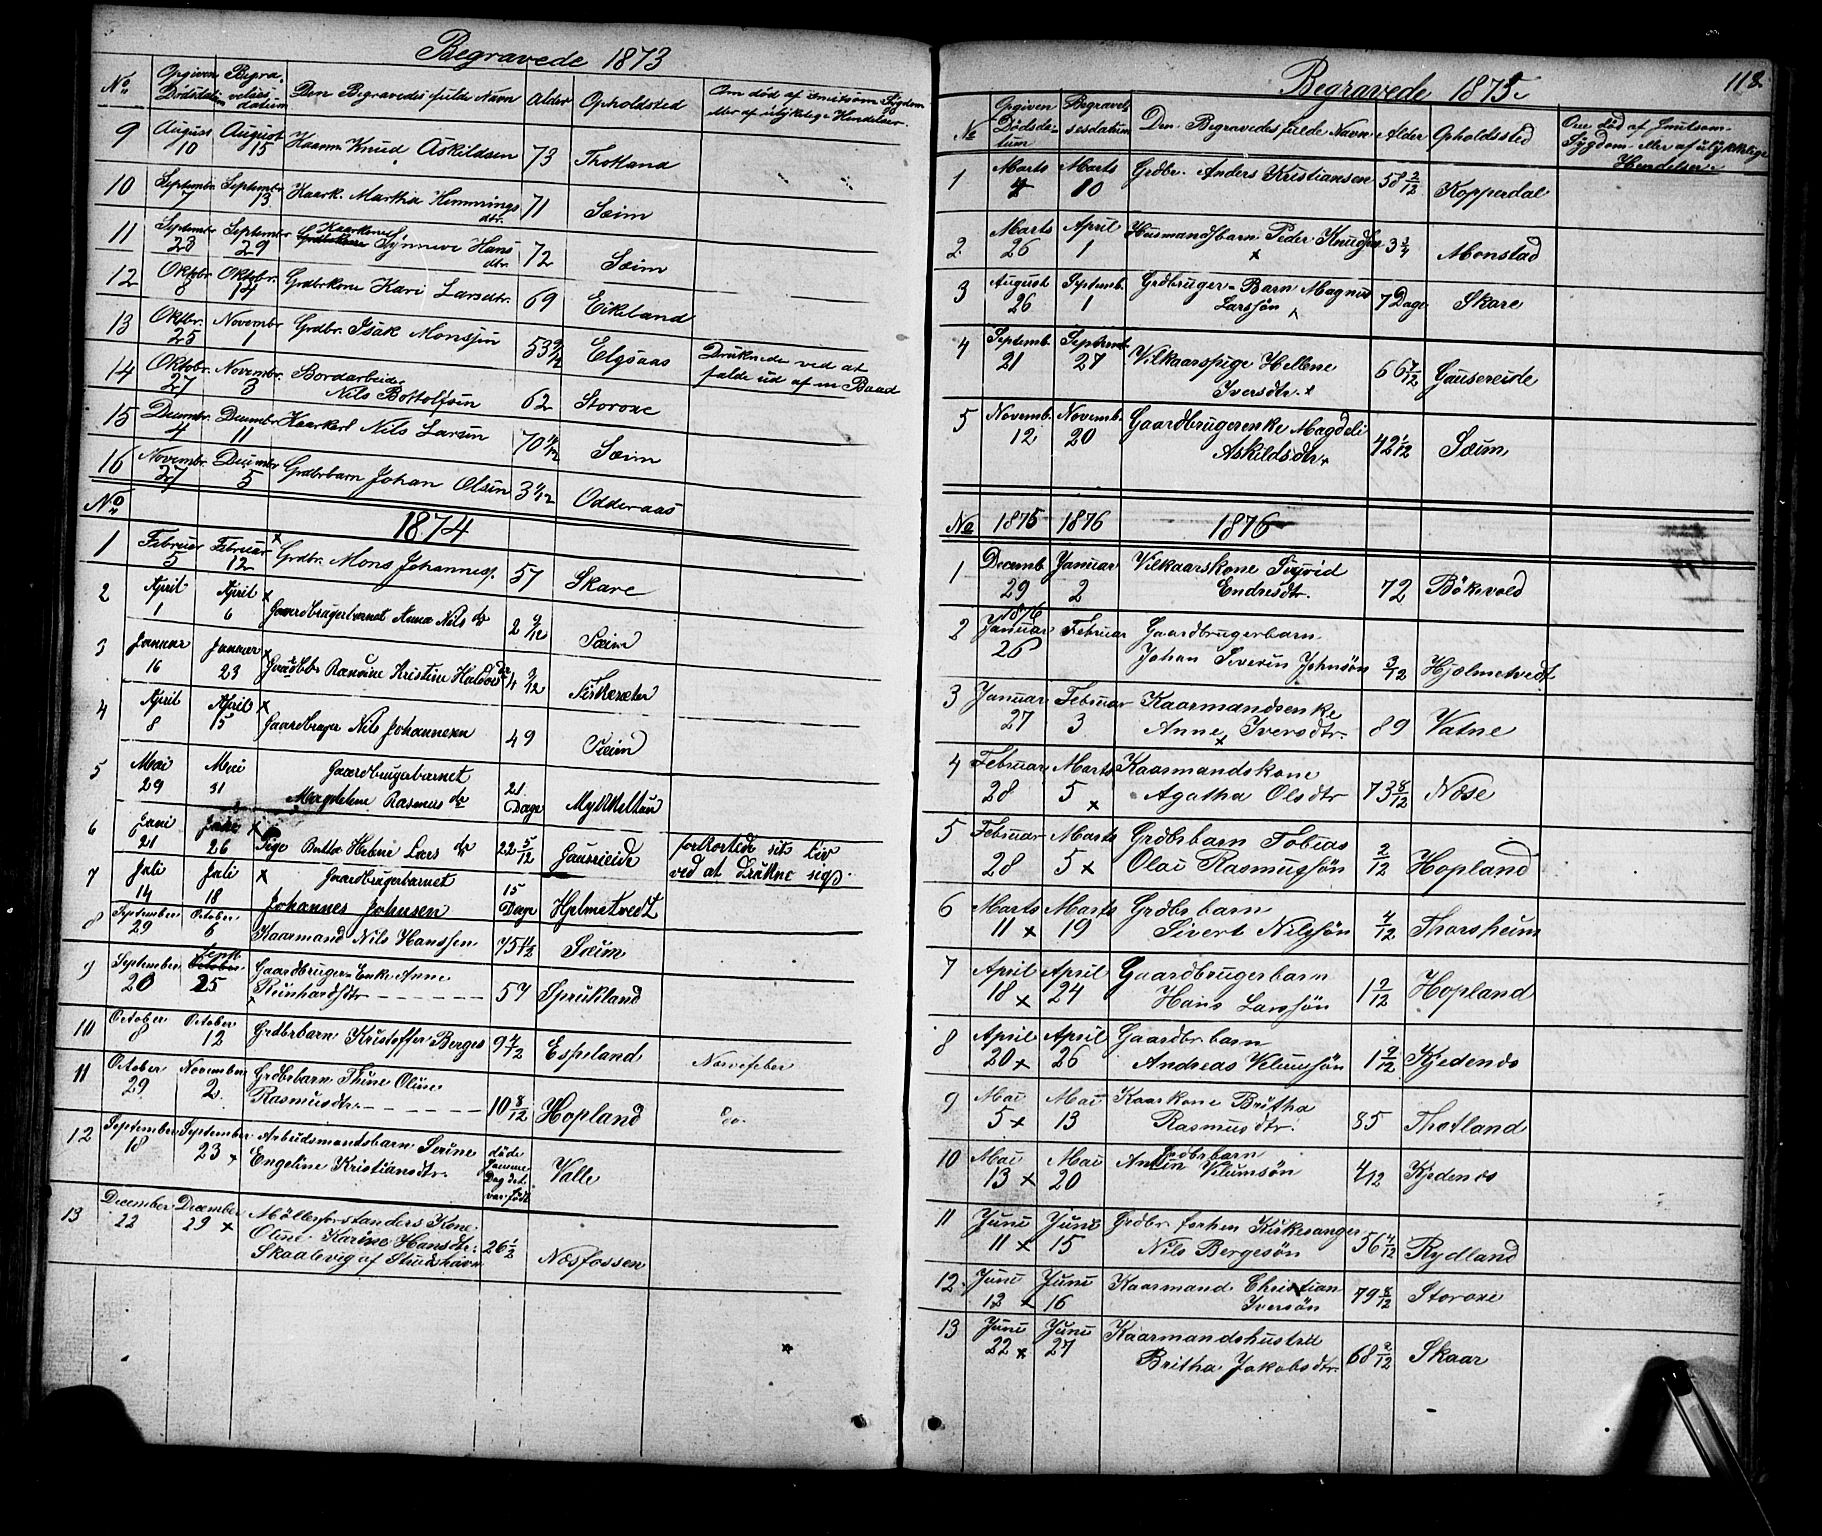 Begravede 1873
No
Opgiven Dødsdatum
Begravelses datum
Den Begravedes fulde Navn
Alder
Opholdsted
Om død af smitsom Sygdom eller af ulykkelige Hendelser
9 August 10 August 15 Kaarm Knud Askildsen 73 Thotland
10 Septembr 7 Septembr 13 Kaark. Martha Hemmings dtr. 71 Sæim
11 September 23 September 29 Synneve Hans dtr. 72 Sæim
12 Oktbr. 8 Oktobr. 14 Grdbrkone Kari Larsdtr. 69 Eikeland
13 Oktbr. 25 Novembr 1 Grdbr. Isak Monssen 53 Elgsaas Druknede ved at falde ud af en Baad
14 Oktobr. 27 Novembr 3 Bordarbeider Nils Bottolfsen 62 Storoxe
15 Decembr. 4 Decembr 11 Kaarkarl Nils Larsen 70 Sæim
16 Novembr. 27 Decembr 5 Grdbrbarn Johan Olsen 3 Odderaas
No 1874
1 Februar 5 Februar 12 x Grdbr. Mons Johannes. 57 Skare
2 April 1 April 6 x Gaardbrugerbarnet Anna Nils dr 2 9/12 Sæim
3 Januar 16 Januar 23 x Gaardbbr Kristine 4 9/12 Fiskesæter
4 April 8 April 15 x Gaardbruger Nils Johannesen 49 Sæim
5 Mai 29 Mai 31 Gaardbrugerbarnet Magdelene Rasmus dr 21 Dage Mykkeltun
6 Juni 21 Juni 26 x Pige Helene Lars dr 22 5/12 Gausereide forkortede sit Liv ved at drukne sig
7 Juli 14 Juli 18 x Gaardbrugerbarnet Johannes Johnsen 15 Dage Hjelmetvedt
8 September 29 October 6 Kaarmand Nils Hanssen 75 Sæim
9 September 20 Septb 25 Gaardbruger-Enke Anne Reinhardsdtr 57 Sprukland
10 October 8 October 12 Grdbrbarn Kristoffer Berges 9 Espeland Nervefeber
11 October 29 November 2 Grdbrbarn Thine Oline Rasmusdtr. 10 8/12 Hopland do.
12 September 18 September 23 x Arbeidsmandsbarn Serine Engeline Kristiansdtr. døde samme Dag det var født Valle
13 December 22 December 29 x Møllerforstanders Kone Oline Karine Hansdtr. Skaalevig af Studshavn 26 1/2 Næsfossen
Begravede 1875
118
No
Opgiven Dødsdatum
Begravelsesdatum
Den Begravedes fulde Navn
Alder
Opholdssted
Om død af smitsom Sygdom eller af ulykkelige Hendelser
1 Marts 4 Marts 10 Grdbr. Anders Kristiansen 58 2/12 Kopperdal
2 Marts 26 April 1 Husmandsbarn Peder Knudsen x 3 3/4 Monstad
3 August 26 Septemb. 1 Grdbruger-Barn Magnus Larssøn x 7 Dage Skare
4 Septemb. 21 Septemb. 27 Vilkaarspige Hellene Iversdtr. x 66 7/12 Gausereide
5 Novemb. 12 Novemb. 20 Gaardbrugerenke Magdeli Askildsdtr 42 1/12 Sæim
No 1875 1876 1876
1 Decemb. 29 Januar 2 Vilkaarskone Sigrid Endresdtr. 72 Bökevold
2 1876 Januar 26 Februar Gaardbrugerbarn Johan Severin Johnsøn 3/12 Hjelmetvedt
3 Januar 27 Februar 3 Kaarmandsenke Anne Iversdtr. x 89 Vatne
4 Februar 28 Marts 5 x Kaarmandskone Agatha Olsdtr 73 8/12 Næse
5 Februar 28 Marts 5 x Grdbrbarn Tobias Olai Rasmussøn 2/12 Hopland
6 Marts 11 x Marts 19 Grdbrbarn Sivert Nilssøn 4/12 Thorsheim
7 April 18 x April 24 Gaardbrugerbarn Hans Larssøn 1 9/12 Hopland
8 April 20 x April 26 Gaardbr barn Andreas Velumsøn 1 9/12 Kjedenes
9 Mai 5 x Mai 13 Kaarkone Britha Rasmusdtr. 85 Thotland
10 Mai 13 x Mai 20 Grdbrbarn Velumsøn 4/12 Kjedenes
11 Juni 11 x Juni 15 Grdbr. forhen Kirkesanger Nils Bergesøn 56 4/12 Rydland
12 Juni 12 x Juni 16 Kaarmand Christian Iversøn 79 8/12 Storoxe
13 Juni 22 x Juni 27 Kaarmandshustru Britha Jakobsdtr. 68 2/12 Skaar